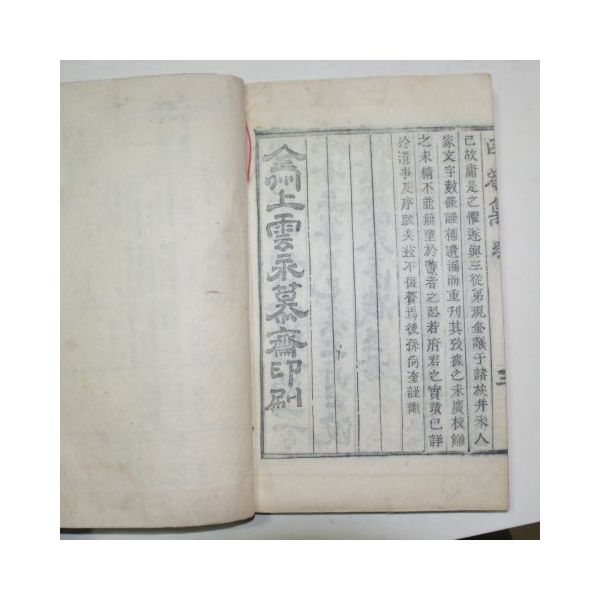 已故庸是之懼遂與三從弟現奎議于諸族幷采人
家文字數條謹補遺漏而重刊其攷據之未廣校讎
之未精不能無望於覽者之恕若府君之實蹟已詳
於遺事及序跋矣玆不復贅焉後孫尙奎謹識
上雲永慕齋印刷